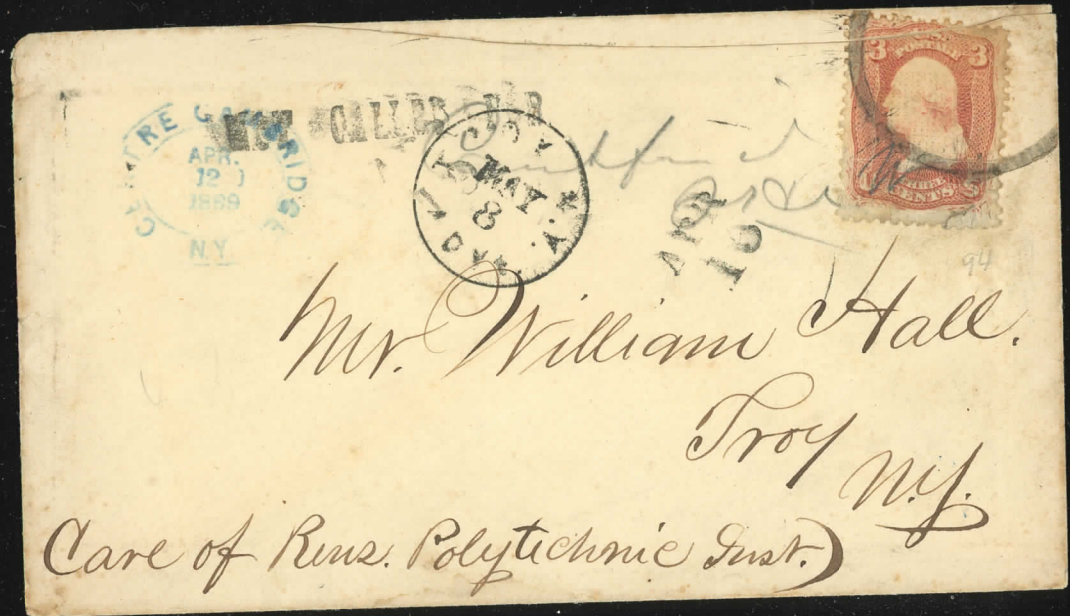 CENTRE CAMBRIDGE
APR.
12
1869
N.Y.
NOT CALLED FOR
ADV
TROY
N.Y.
MAY
8
APR
15
3 3
U.S. POSTAGE
CENTS
94
Mr. William Hall.
Troy
N.Y.
(Care of Rens. Polytechnic Inst.)